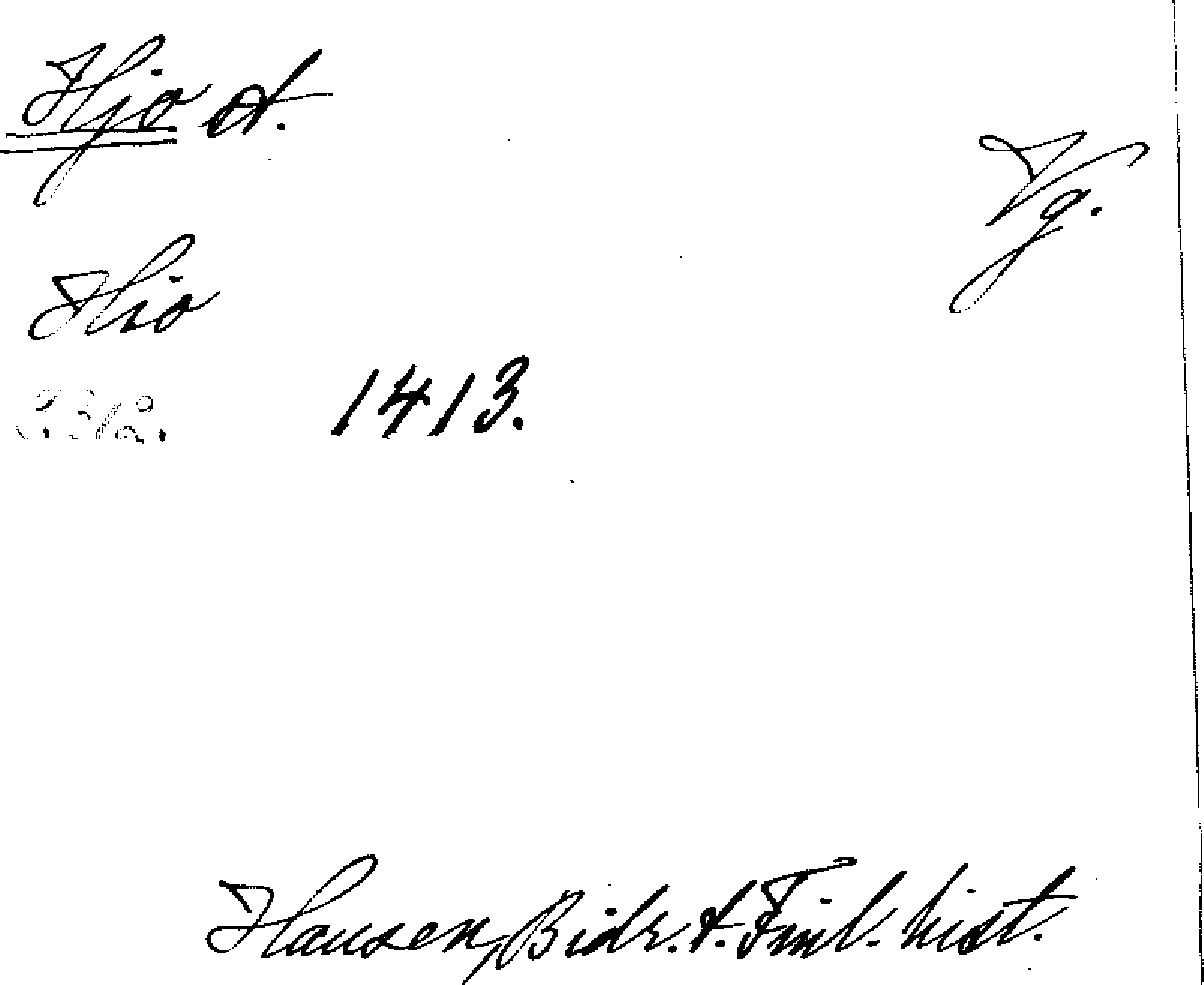 Hjo st.
Vg.
Hio
1413.
Hausen, Bidr. t. Finl. hist.